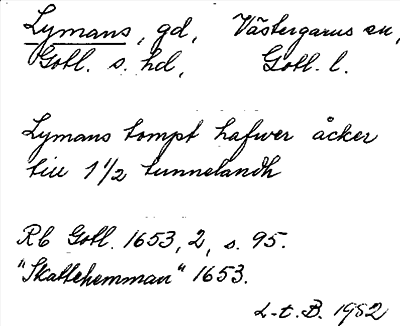 Lymans, gd, Västergarns sn,
Gotl. s. hd, Gotl. l.
Lymans tompt hafwer åcker
till 1 1/2 tunnelandh
Rb Gotl. 1653, 2, s. 95.
"Skattehemman" 1653.
L-t. B. 1982